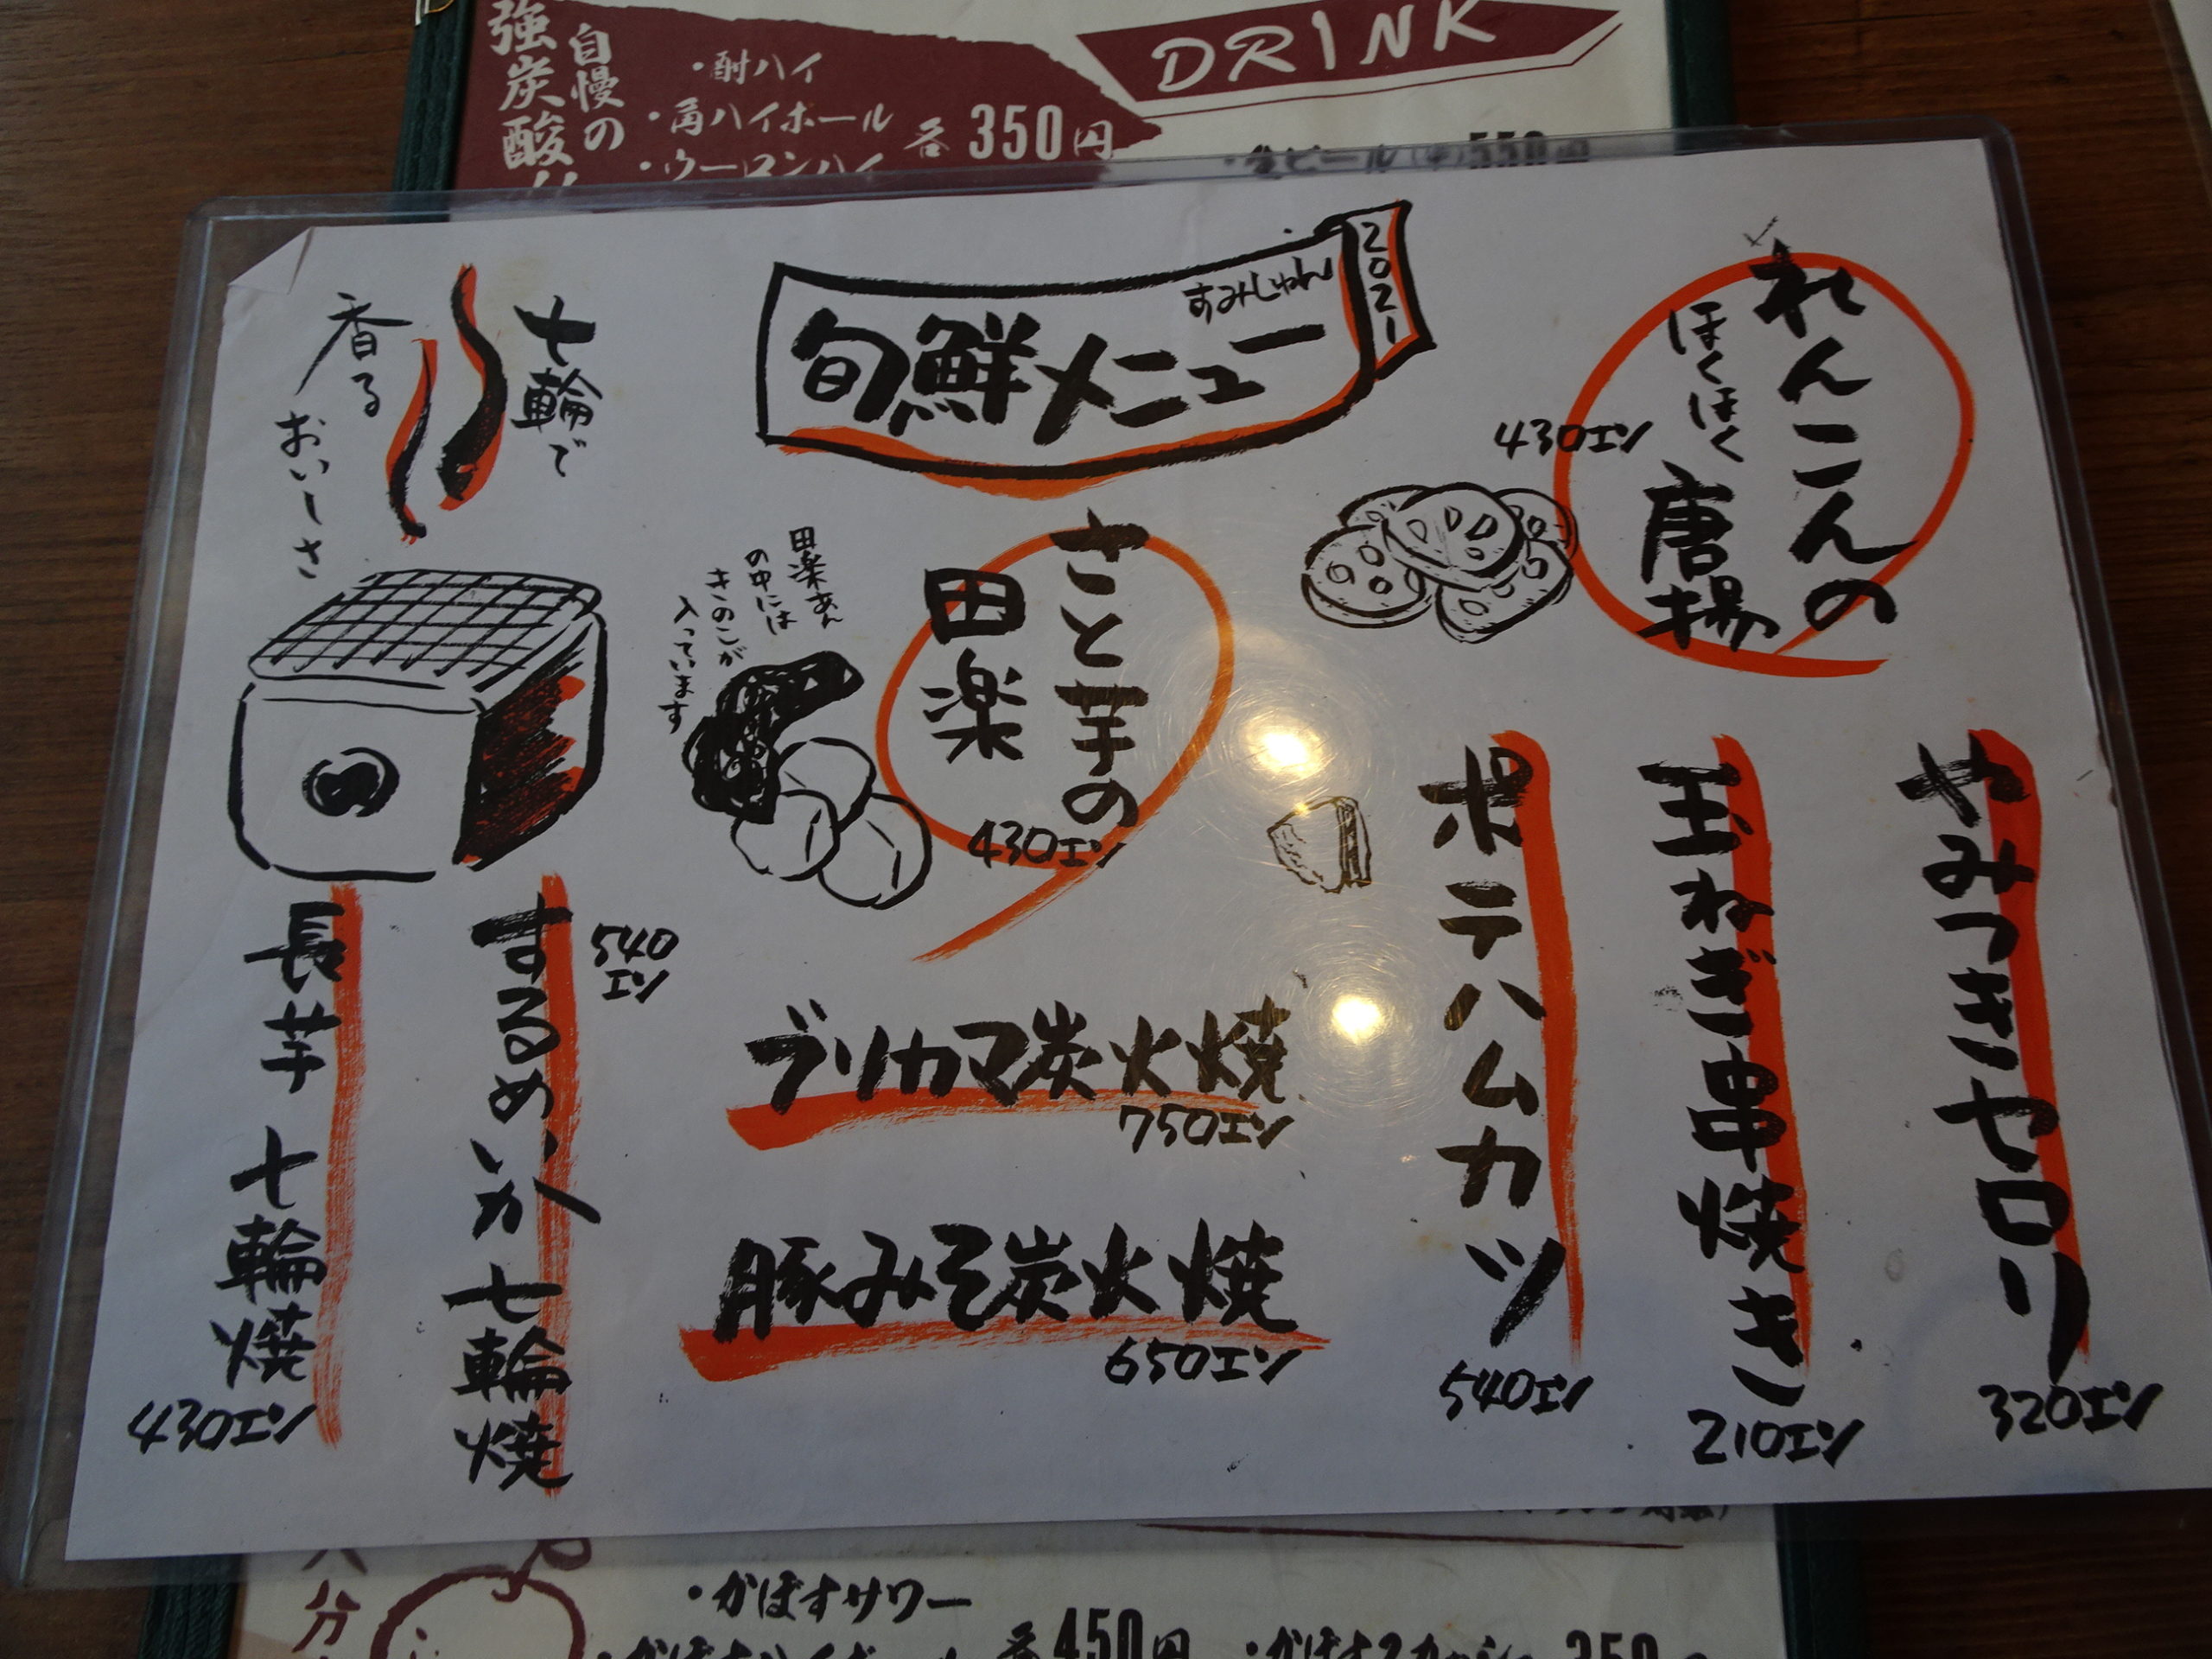 自慢の
強炭酸
・酎ハイ
・角ハイボール
・ウーロンハイ
各350円
DRINK
・生ビール(中)550円
2021
すみじゅん
旬鮮メニュー
れんこんの
ほくほく
唐揚
430エン
さと芋の
田楽
430エン
田楽あん
の中には
きのこが
入っています
七輪で
香る
おいーさ
やみつきセロリ
320エン
玉ねぎ串焼き
210エン
ポテハムカツ
540エン
ブリカマ炭火焼
750エン
豚みそ炭火焼
650エン
するめいか七輪焼
540
エン
長芋七輪焼
430エン
・かぼすサワー
各450円
350
分